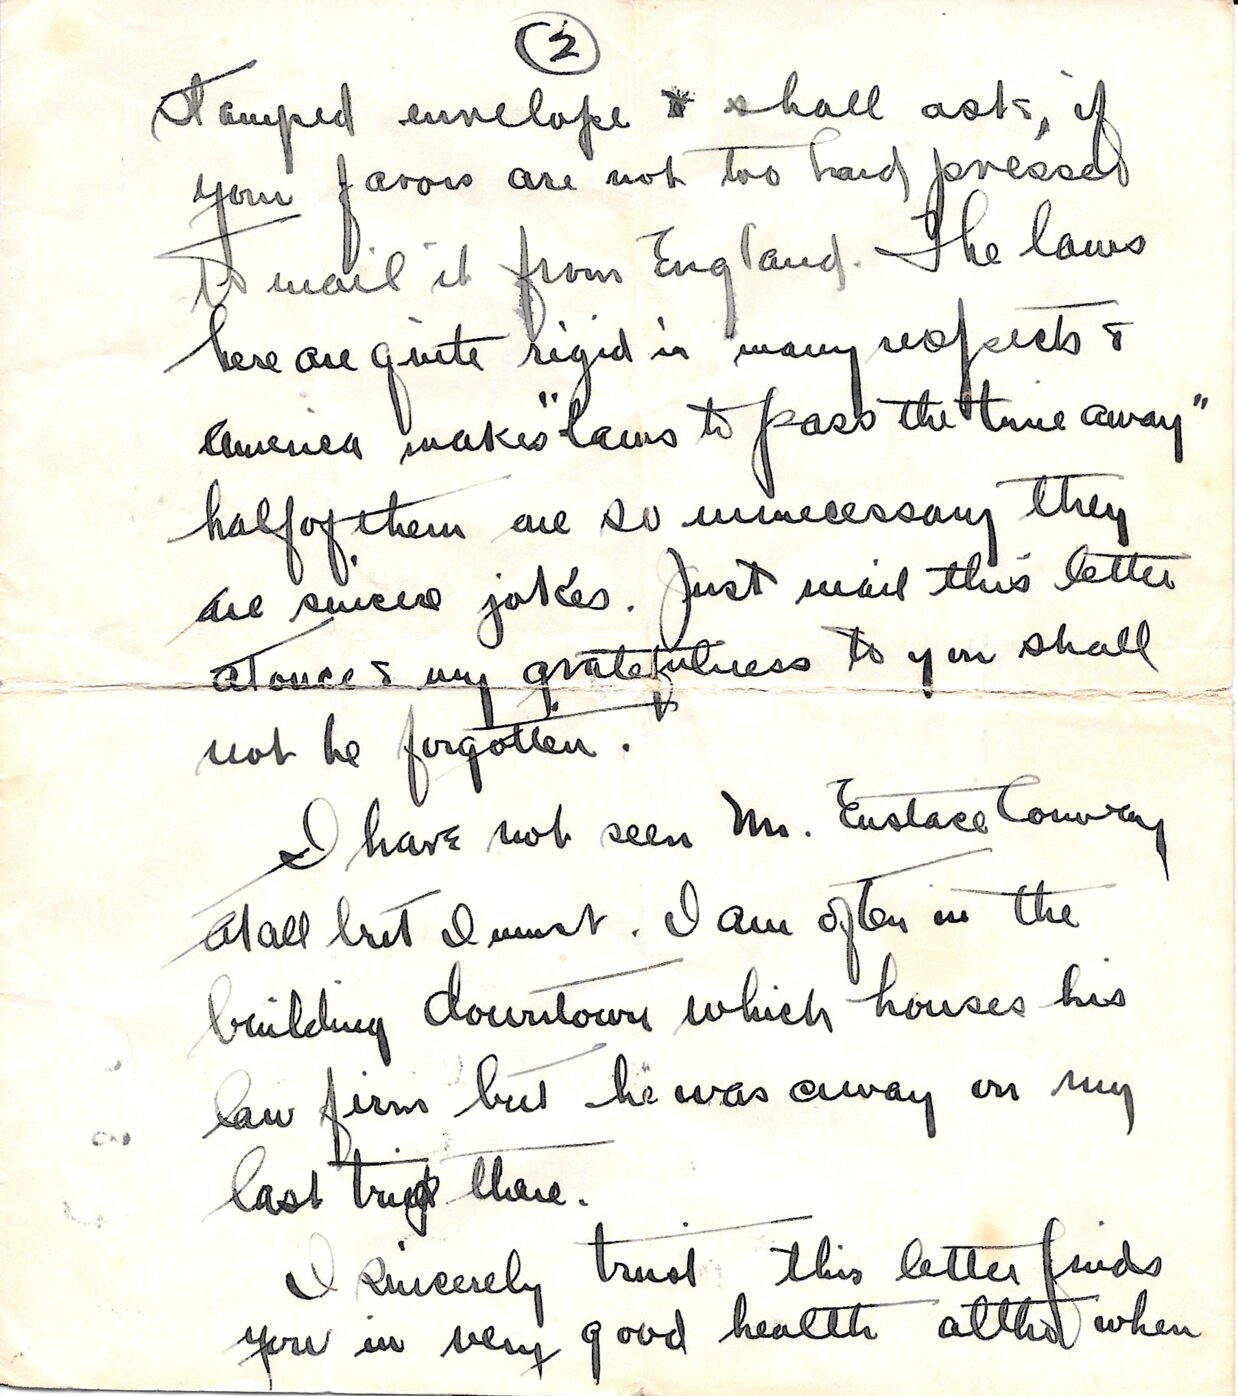 (2)
stamped envelope & shall ask, if
your favors are not too hard pressed
to mail it from England. The laws
here are quite rigid in many respects &
america makes "laws to pass the time away"
half of them are so unnecessary they
are sincere jokes. Just mail this letter
at once & my gratefulness to you shall
not be forgotten.
I have not seen Mr. Eustace Conway
at all but I must. I am often in the
building downtown which houses his
law firm but he was away on my
last trip there.
I sincerely trust this letter finds
you in very good health altho when